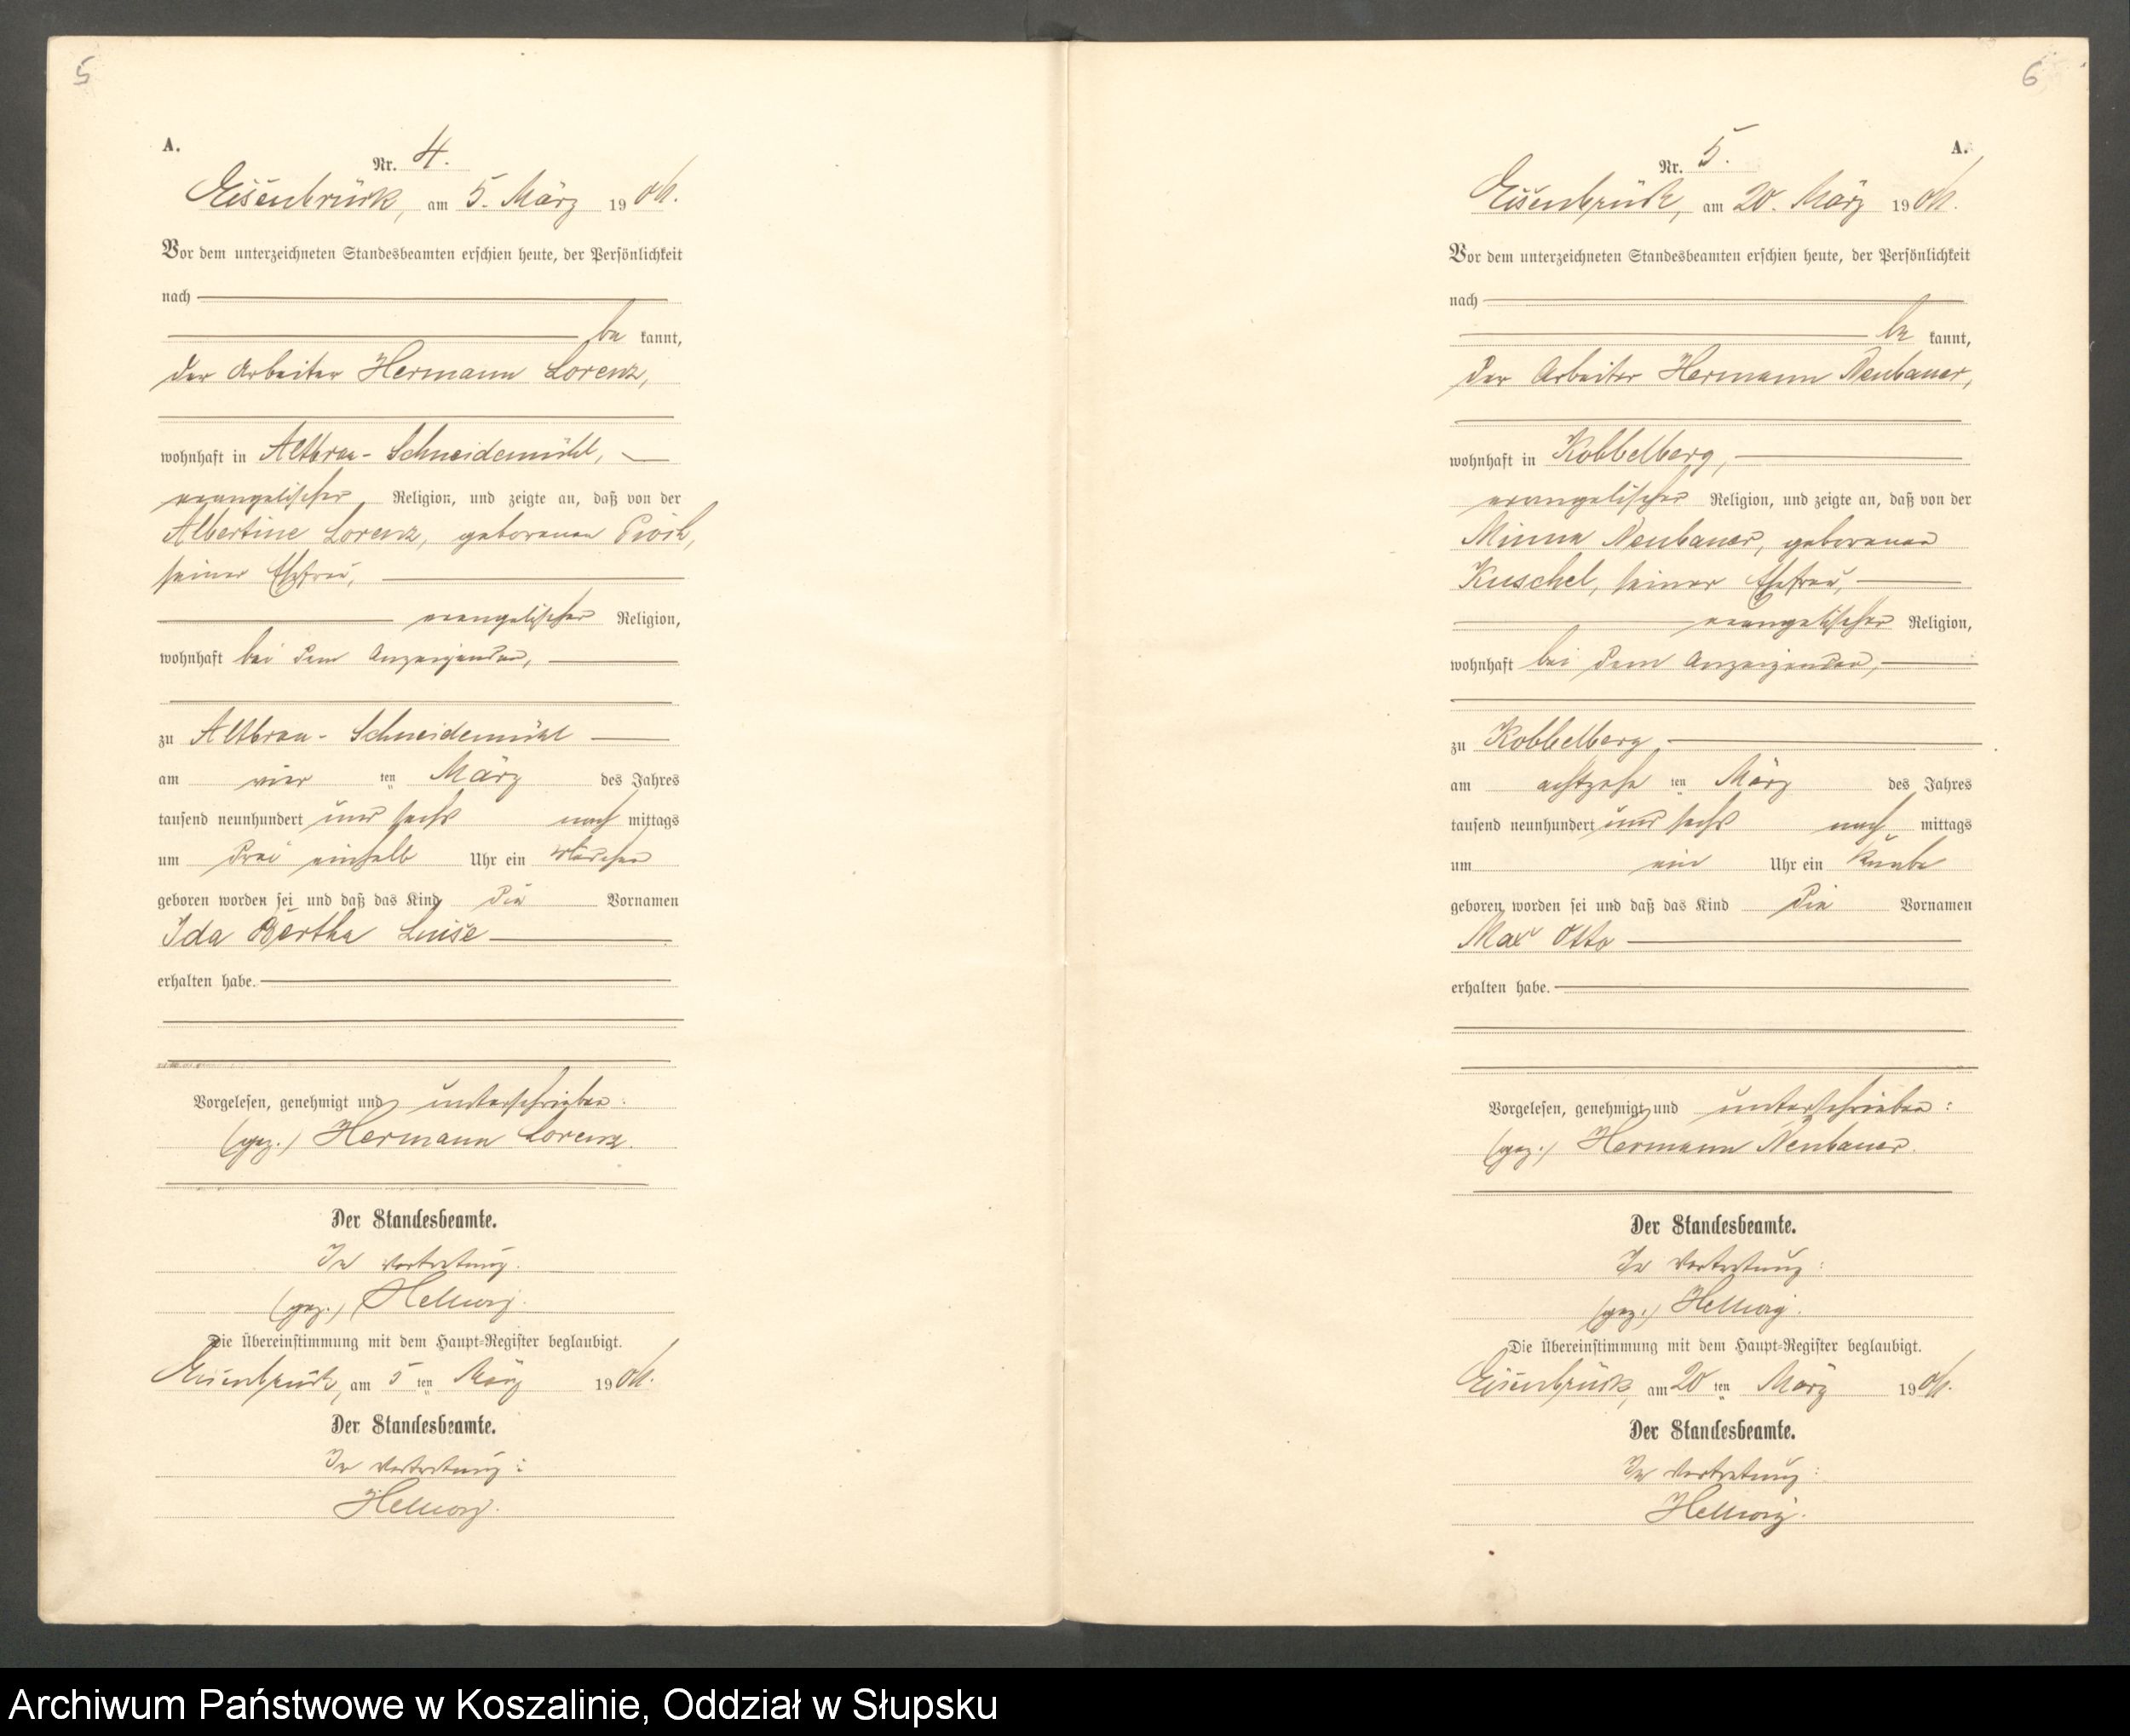 5
A.
Nr. 4.
Eisenbrück, am 5. März 1906.
Vor dem unterzeichneten Standesbeamten erschien heute, der Persönlichkeit
nach
be kannt,
der Arbeiter Hermann Lorenz,
wohnhaft in Altbrau-Schneidemühl,
evangelischer Religion, und zeigte an, daß von der
Albertine Lorenz, geborenen
seiner Ehefrau,
evangelischer Religion,
wohnhaft bei dem Anzeigenden,
zu Altbrau-Schneidemühl
am vier ten März des Jahres
tausend neunhundert und sechs nach mittags
um drei einhalb Uhr ein Mädchen
geboren worden sei und daß das Kind die Vornamen
Ida Bertha Luise
erhalten habe.
Vorgelesen, genehmigt und unterschrieben:
(gez.) Hermann Lorenz.
Der Standesbeamte.
In Vertretung.
(gez.) Hellwig.
Die Übereinstimmung mit dem Haupt-Register beglaubigt.
Eisenbrück, am 5 ten März 1906.
Der Standesbeamte.
In Vertretung:
Hellwig.
6
A.
Nr. 5.
Eisenbrück, am 20. März 1906.
Vor dem unterzeichneten Standesbeamten erschien heute, der Persönlichkeit
nach
be kannt,
der Arbeiter Hermann Neubauer,
wohnhaft in Kobbelberg,
evangelischer Religion, und zeigte an, daß von der
Minna Neubauer, geborenen
Kuschel, seiner Ehefrau,
evangelischer Religion,
wohnhaft bei dem Anzeigenden,
zu Kobbelberg
am achtzehn ten März des Jahres
tausend neunhundert und sechs nach mittags
um ein Uhr ein Knabe
geboren worden sei und daß das Kind die Vornamen
Max Otto
erhalten habe.
Vorgelesen, genehmigt und unterschrieben:
(gez.) Hermann Neubauer.
Der Standesbeamte.
In Vertretung:
(gez.) Hellwig.
Die Übereinstimmung mit dem Haupt-Register beglaubigt.
Eisenbrück, am 20 ten März 1906.
Der Standesbeamte.
In Vertretung:
Hellwig.
Archiwum Państwowe w Koszalinie, Oddział w Słupsku